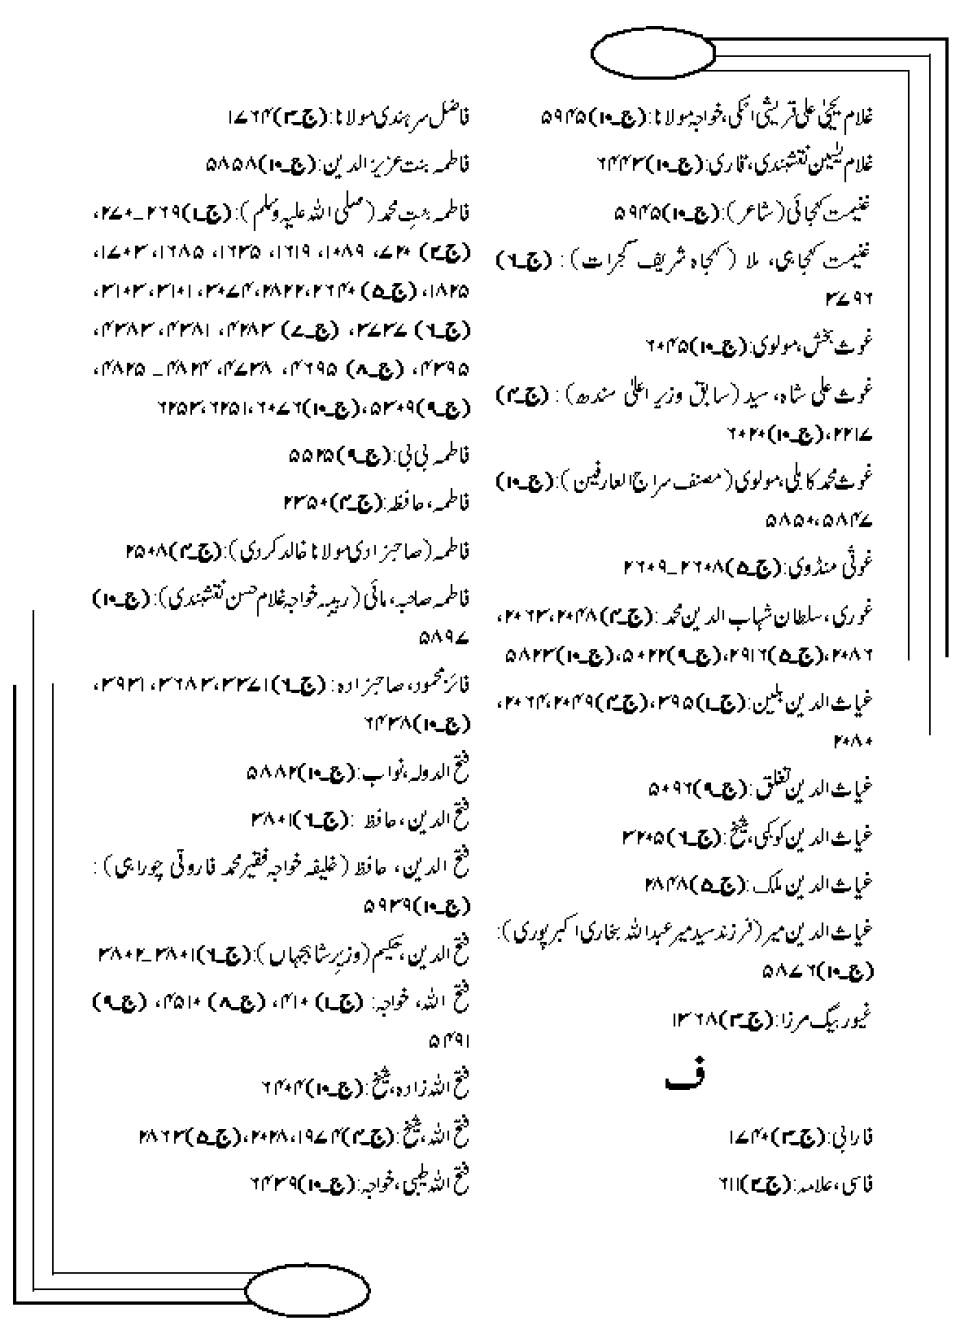 غلام یحییٰ علی قریشی اٹکی، خواجہ مولانا:(ج۔۱۰)۵۹۴۵
غلام یٰسین نقشبندی، قاری:(ج۔۱۰)۶۴۴۳
غنیمت کنجائی(شاعر):(ج۔۱۰)۵۹۴۵
غنیمت کنجاہی، ملا (کنجاہ شریف گجرات): (ج۔۶)
۳۷۹۶
غوث بخش، مولوی:(ج۔۱۰)۶۰۴۵
غوث علی شاہ، سید (سابق وزیر اعلیٰ سندھ): (ج۔۴)
۲۲۱۷،(ج۔۱۰)۶۰۲۰
غوث محمد کابلی، مولوی(مصنف سراج العارفین):(ج۔۱۰)
۵۸۴۷،۵۸۵۰
غوثی منڈوی:(ج۔۵)۲۶۰۸۔۲۶۰۹
غوری، سلطان شہاب الدین محمد:(ج۔۴)۲۰۴۸،۲۰۶۳،
۲۰۸۶،(ج۔۵)۲۹۱۶،(ج۔۹)۵۰۲۲،(ج۔۱۰)۵۸۲۳
غیاث الدین بلبن:(ج۔۱)۳۹۵،(ج۔۴)۲۰۴۹،۲۰۶۴،
۲۰۸۰
غیاث الدین تغلق:(ج۔۹)۵۰۹۶
غیاث الدین کوکبی، شیخ:(ج۔۶)۳۲۰۵
غیاث الدین ملک:(ج۔۵)۲۸۴۸
غیاث الدین میر(فرزند سید میر عبداللہ بخاری اکبر پوری):
(ج۔۱۰)۵۸۷۶
غیور بیگ مرزا:(ج۔۳)۱۳۶۸
ف
فارابی:(ج۔۳)۱۷۴۰
فاسی، علامہ:(ج۔۲)۶۱۱
فاضل سرہندی مولانا:(ج۔۳)۱۷۶۴
فاطمہ بنت عزیز الدین:(ج۔۱۰)۵۸۵۸
فاطمہ بنتِ محمد(صلی اللہ علیہ وسلم):(ج۔۱)۲۶۹۔۲۷۰،
(ج۔۲)۷۲۰، ۱۰۸۹، ۱۶۱۹، ۱۶۳۵، ۱۶۸۵، ۱۷۰۳،
۱۸۲۵،(ج۔۵)۲۶۴۰،۲۸۲۲،۳۰۷۴،۳۱۰۱،۳۱۰۳،
(ج۔۶)۳۷۳۷، (ج۔۷)۴۲۸۳، ۴۳۸۱، ۴۳۸۳،
۴۳۹۵، (ج۔۸)۴۶۹۵، ۴۷۳۸، ۴۸۲۴۔ ۴۸۲۵،
(ج۔۹)۵۳۰۹،(ج۔۱۰)۶۰۷۶،۶۲۵۱،۶۲۵۳
فاطمہ بی بی:(ج۔۹)۵۵۲۵
فاطمہ، حافظہ:(ج۔۴)۲۳۵۰
فاطمہ(صاحبزادی مولانا خالد کردی):(ج۔۴)۲۵۰۸
فاطمہ صاحبہ، مائی(ربیبہ خواجہ غلام حسن نقشبندی):(ج۔۱۰)
۵۸۹۷
فائز محمود، صاحبزادہ:(ج۔۶)۳۳۷۱،۳۶۸۳،۳۹۳۱،
(ج۔۱۰)۶۴۳۸
فتح الدولہ، نواب:(ج۔۱۰)۵۸۸۲
فتح الدین، حافظ :(ج۔۶)۳۸۰۱
فتح الدین، حافظ (خلیفہ خواجہ فقیر محمد فاروقی چوراہی):
(ج۔۱۰)۵۹۳۹
فتح الدین، حکیم(وزیرِ شاہجہاں):(ج۔۶)۳۸۰۱۔۳۸۰۲
فتح اللہ، خواجہ: (ج۔۱)۴۱۰، (ج۔۸)۴۵۱۰، (ج۔۹)
۵۴۹۱
فتح اللہ زادہ، شیخ:(ج۔۱۰)۶۴۰۴
فتح اللہ، شیخ:(ج۔۴)۱۹۷۴،۲۰۲۸،(ج۔۵)۲۸۶۳
فتح اللہ طیبی، خواجہ:(ج۔۱۰)۶۴۳۹